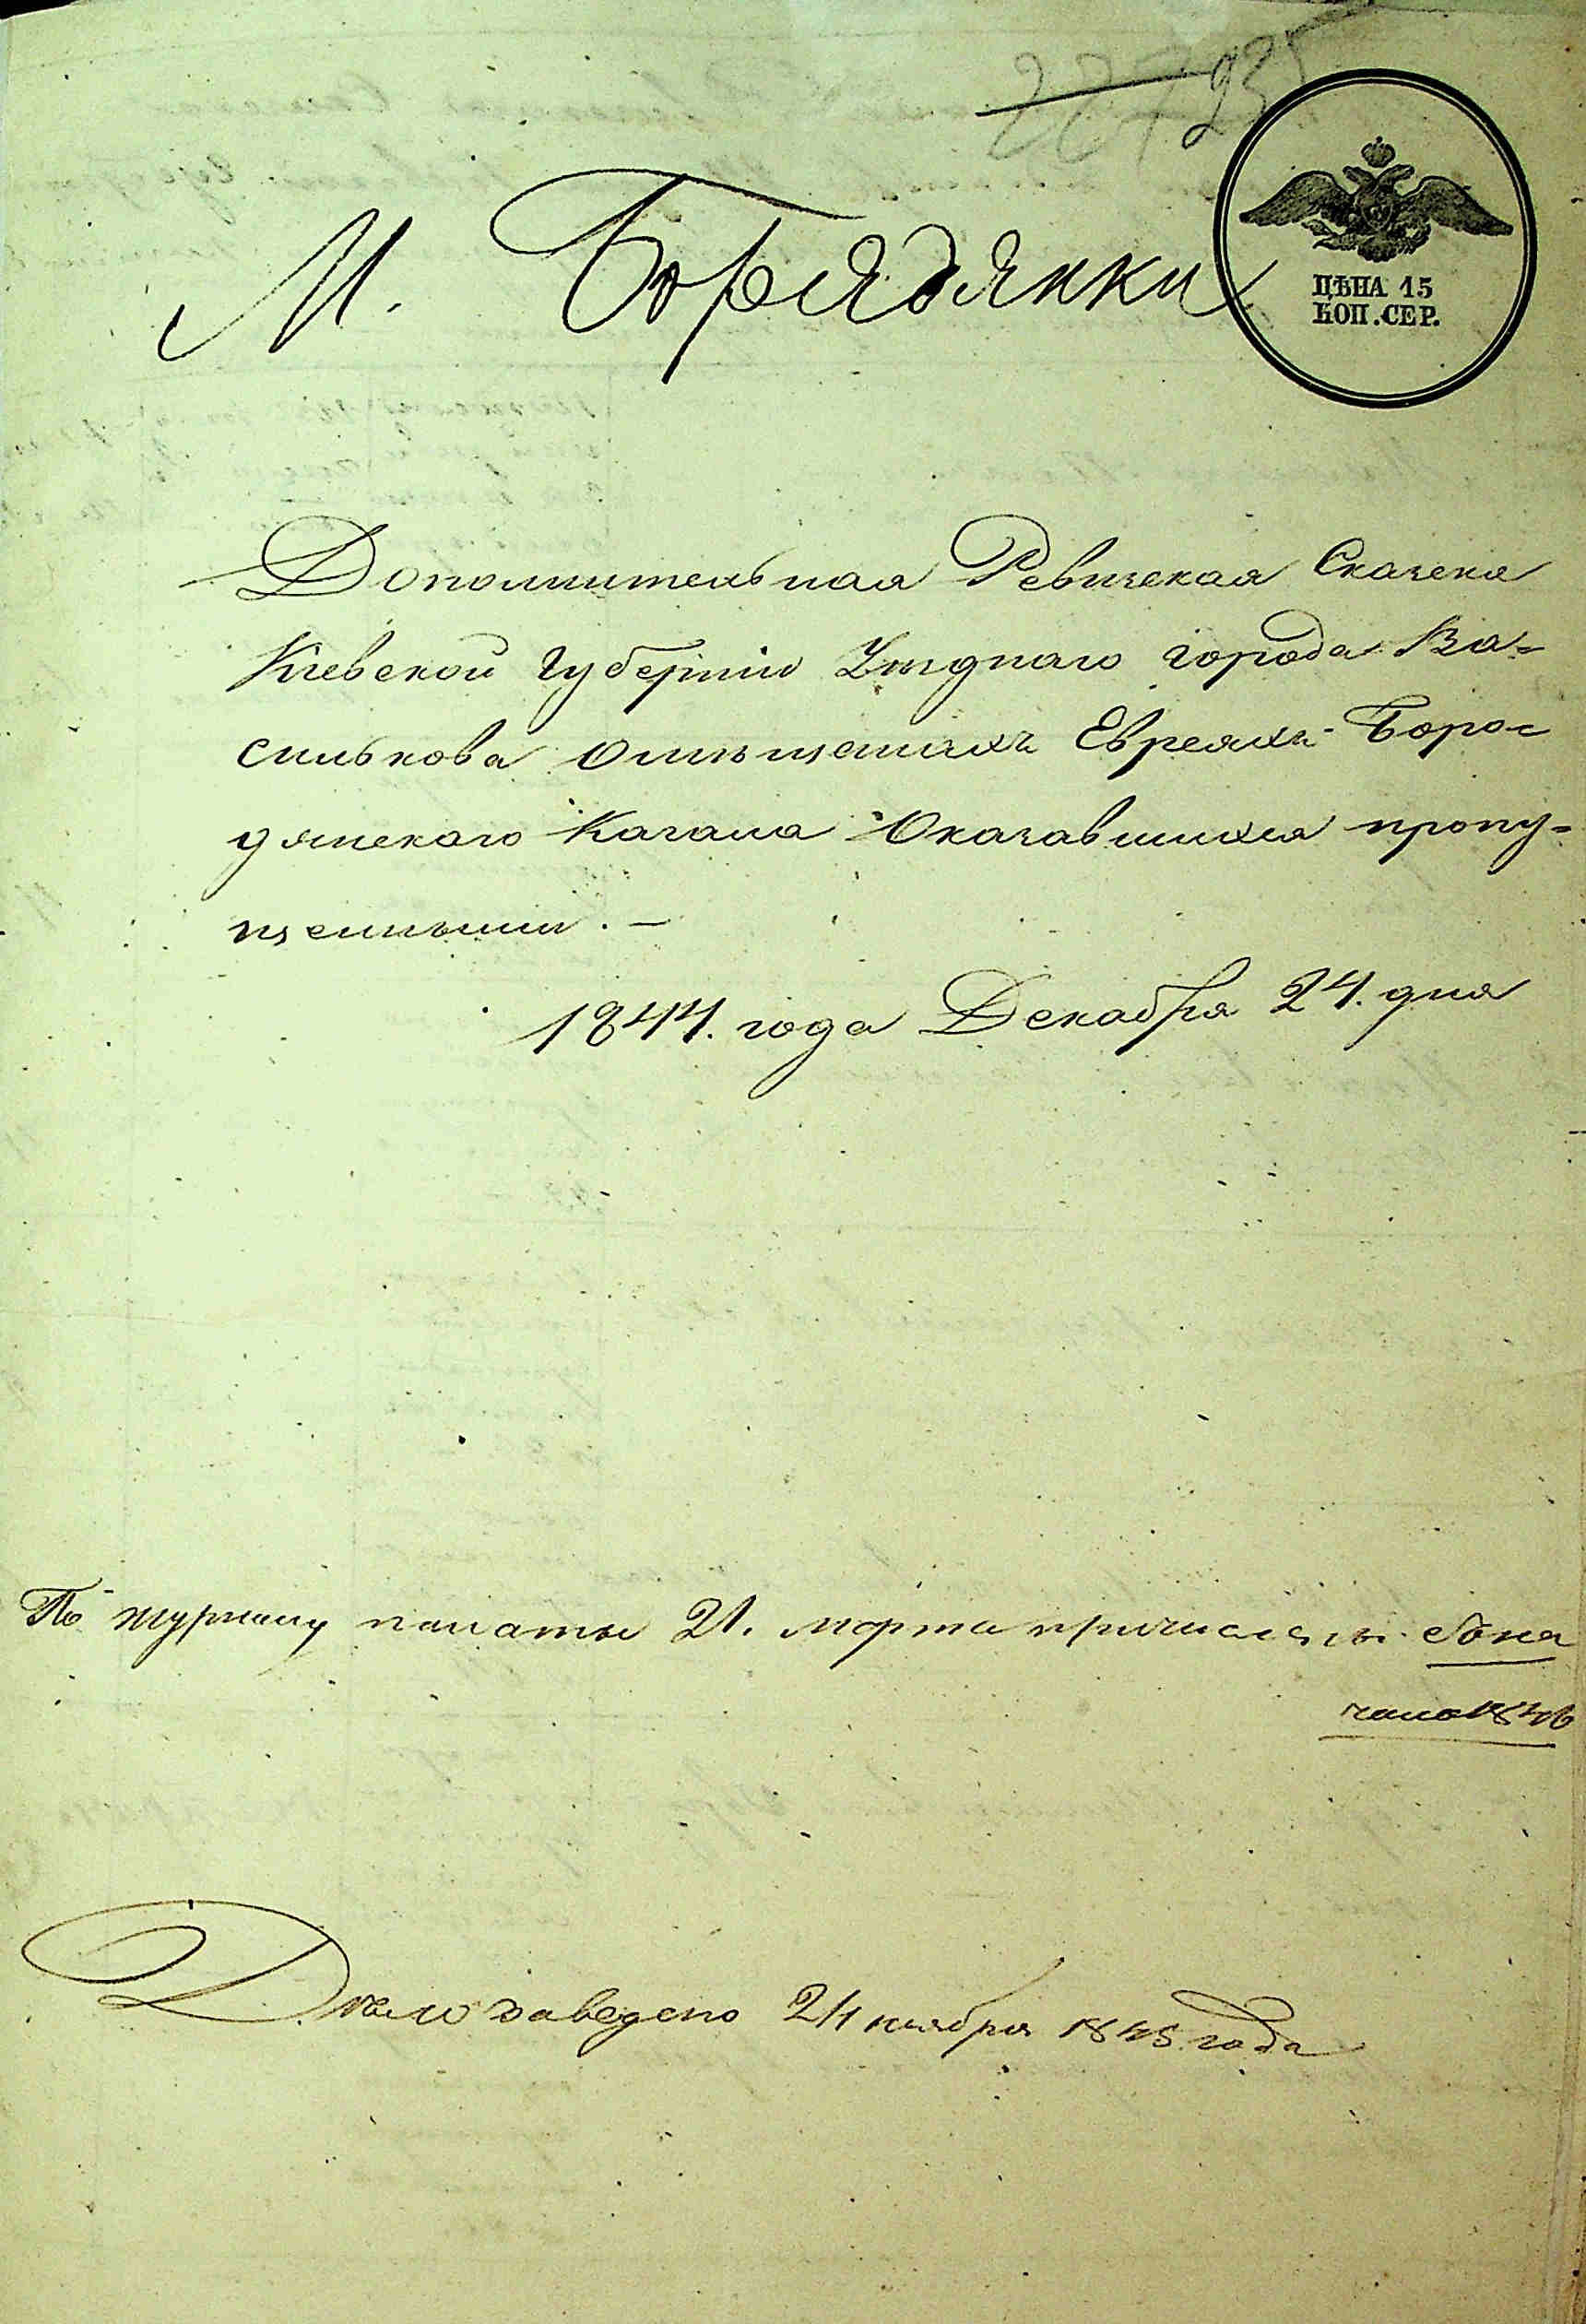 22795
М. Бородянки
ЦѢНА 15
КОП. СЕР.
Дополнительная Ревизская Сказска
Кіевской Губерніи Уѣзднаго города Ва=
силькова Омѣщанахъ Евреяхъ Боро=
дянскаго Кагала Оказавшихся пропу=
щенными. —
1844. года Декабря 24. дня
По журналу палаты 21. марта причислены съ на
чала 1846
Дѣло заведено 24 ноября 1845. года